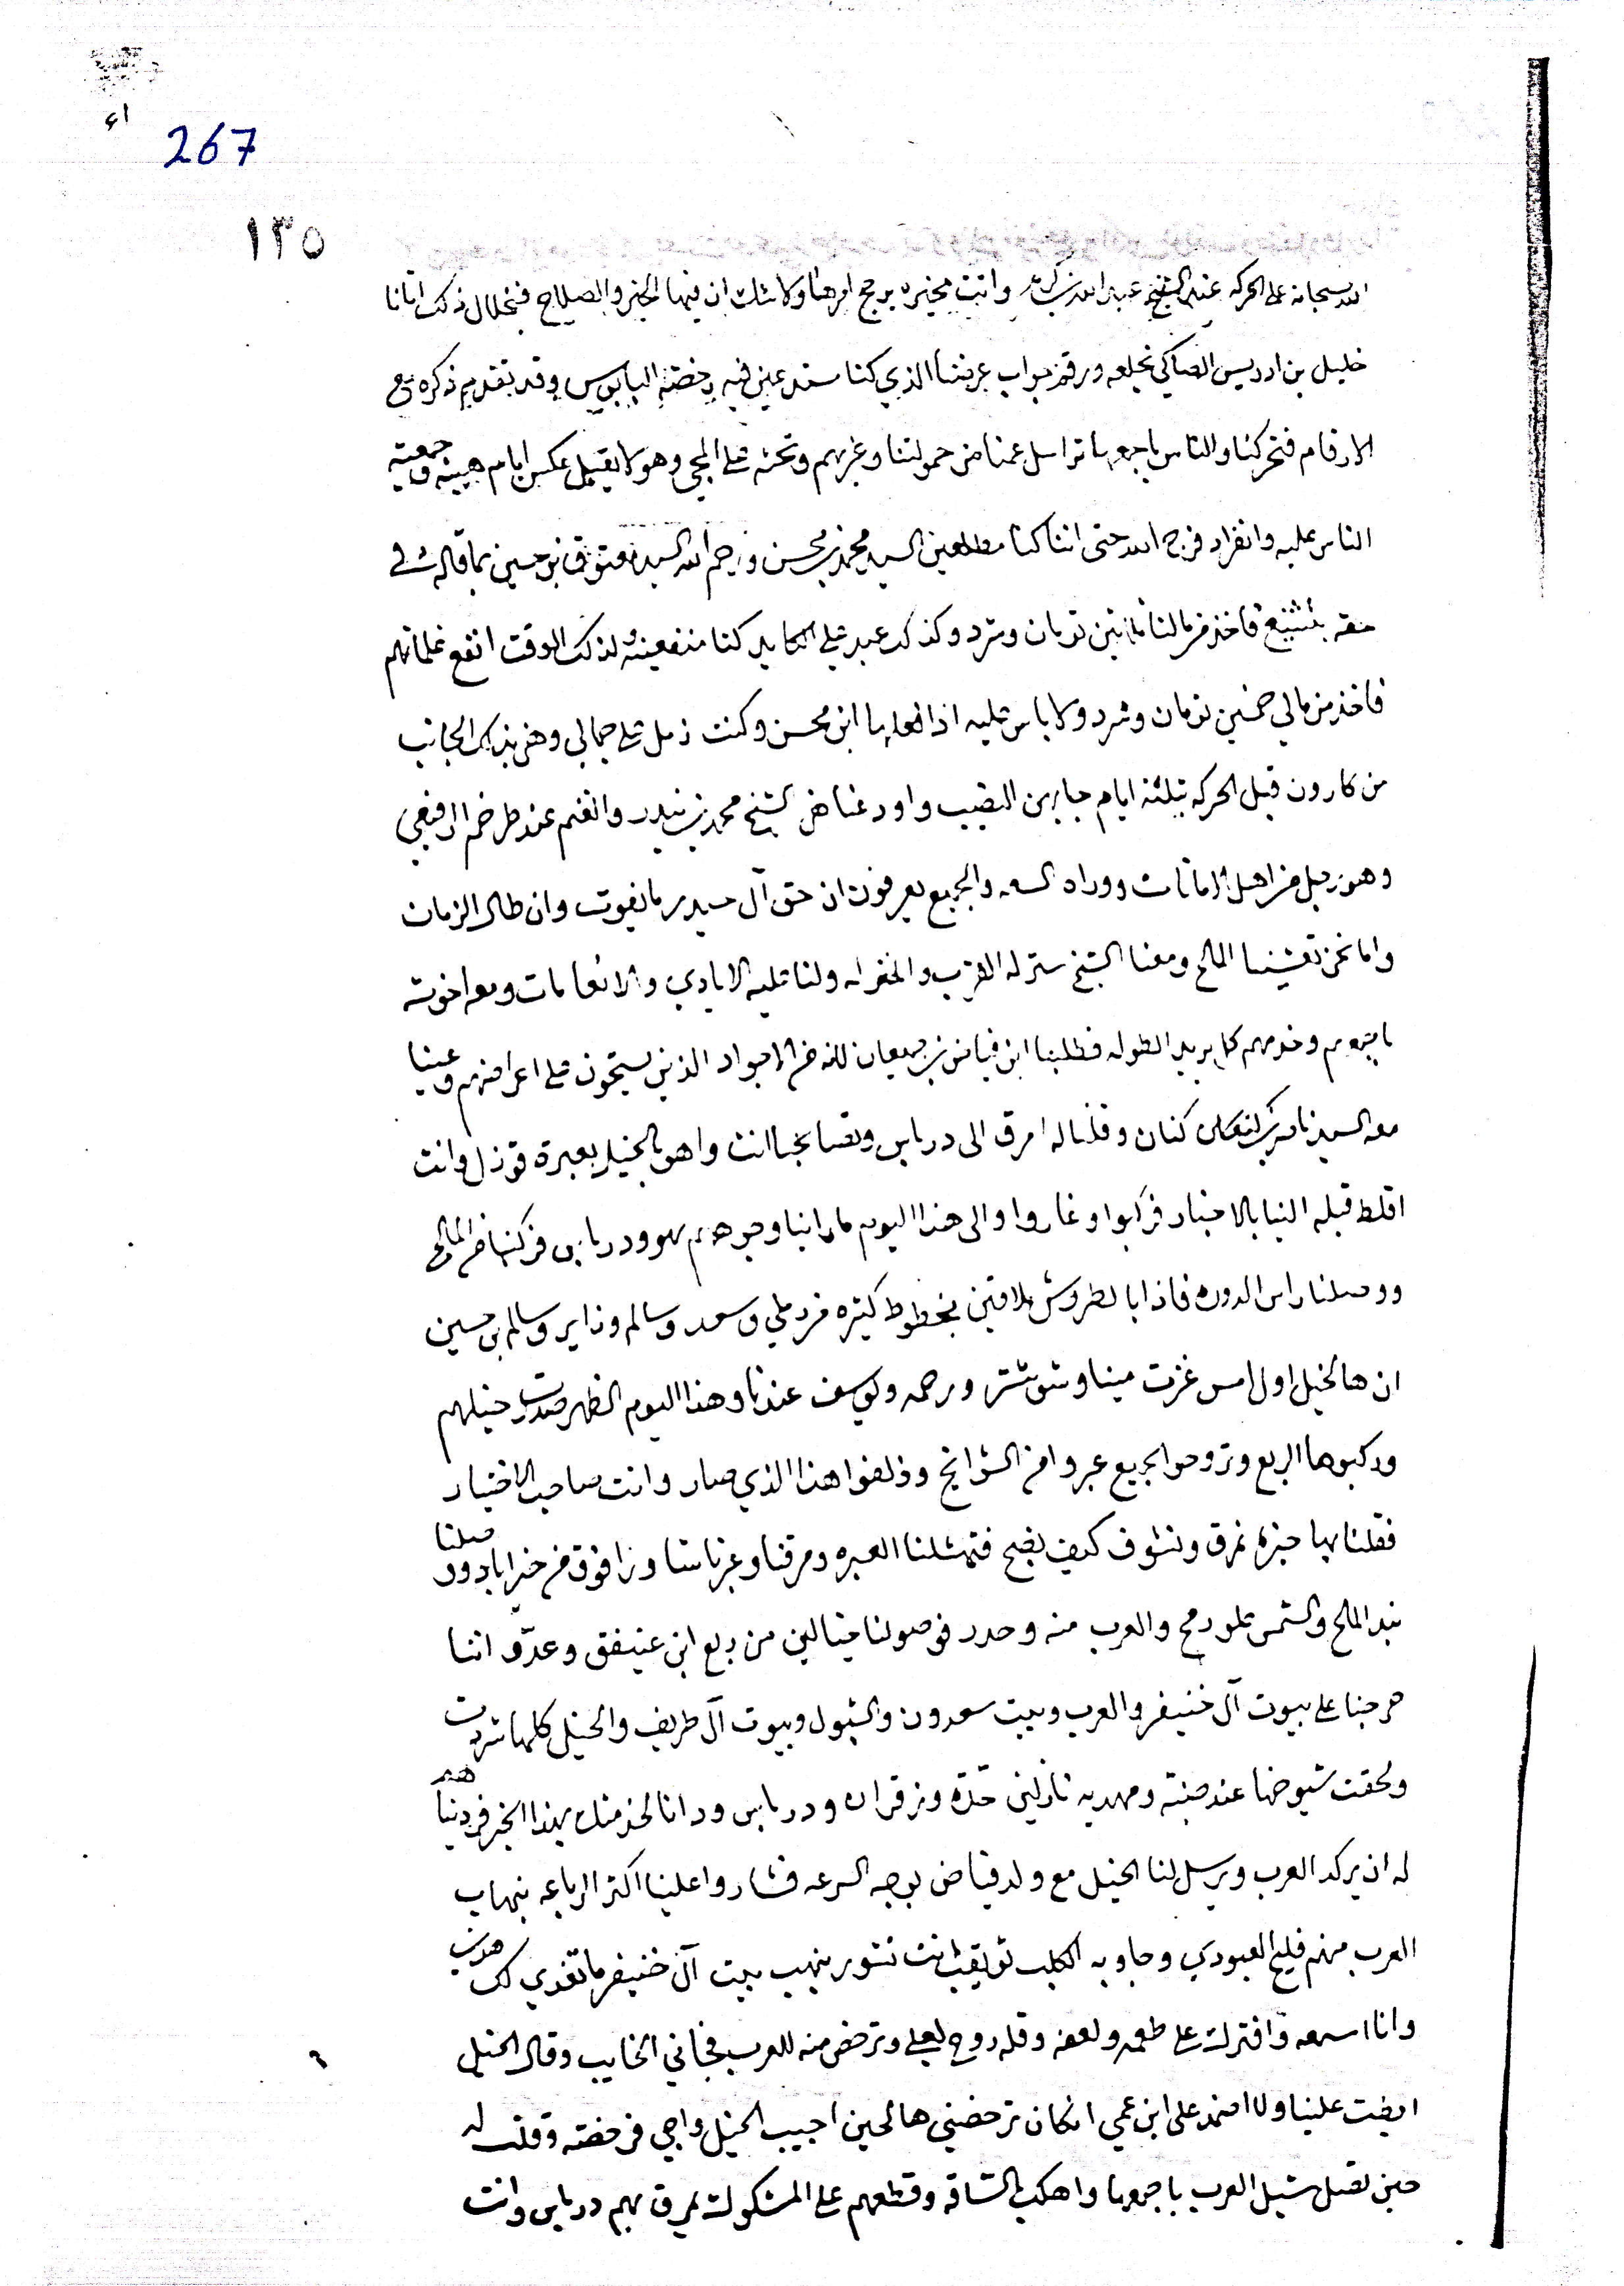 267
١٣٥
الله سبحانه على الحركه عند الشيخ عبد الله بن واتت مخيره يرجح امرهنا ولا شك ان فيها الخير والصلاح فبخلال ذلك اتانا
خليل بن ادريس الصاكي بخلعه ورقم جواب عريضنا الذي كنا مستدعين فيه رخصة البابوس وقد تقديم ذكره مع
الارقام فتحركنا والناس باجمعها تراسل عمنا من حمولتنا وغيرهم وتحثه على المجي وهو لا يقبل عكس ايام هيبته وجمعية
الناس عليه وانفراد فرج الله حتى اننا كنا مطلعين السيد محمد بن محسن ورحم الله السيد معتوق بن حسين بما قاله في
حقه فاخذ من مالنا ثمانين تومان وشرد وكذلك عبد علي كنا منفعينه لذلك الوقت انفع غلمانهم
فاخذ من مالي خمسين تومان وشرد ولا باس عليه اذا فعلها ابن محسن وكنت زمل على جمالي وهن بذلك الجانب
من كارون قبل الحركه بثلثة ايام جابهن النصيب واودعناهن الشيخ محمد بن نيدر والغنم عند الرفيعي
وهو رجل من اهل الامانات ووراه السعه والجميع يعرفون ان حق آل حيدر ما يفوت وان طال الزمان
واما نحن تعشينا المالح ومعنا الشيخ ستر له القرب والمنزله ولنا عليه الايادي والانعامات ومعه اخوته
باجمعهم وخدمهم كل يريد الطوله فطلبنا ابن فياض بن جمعان لانه من الاجواد الذين يستحون على اعراضهم وعينا
معه السيد ناصر كنعان وقلنا له امرق الى درباس وتصابحا انت واهو بالخيل بعبرة قوزل وانت
اقلط قبله الينا بالاخبار فركبوا وغاروا والى هذا اليوم ما راينا وجوههم هو ودرباس فركبنا من المالح
ووصلنا راس الدوره فاذا بالطروش ملاقين بخطوط كثيره من علي وسعد وسالم وزاير وسالم بن حسين
ان هالخيل اول امس غزت مينا وشوشتر ورحمه ويوسف عندنا وهذا اليوم الظهر صدرت خيلهم
وركبوها الربع وتروحوا الجميع عبروا من الشرايخ وزلفوا هذا الذي صار وانت صاحب الاختيار
فقلنا نمرق ونشوف كيف يصح فتمثلنا العبره ومرقنا وعبرناسنا وزافوق من خيراباد ووصلنا
بند الملح والشمس علو رمح والعرب منه وحدر فوصولنا خيالين من ربع ابن عنيفق وعدّو اننا
صرجنا على بيوت آل خنيفر والعرب وبيت سعدون والشبول وبيوت آل طريف والخيل كلها شردت
ولحقت شيوخها عند صبته ومهديه نازلين حدّه وزقران ودرباس ودانا لخدمتك بهذا الخبر فردينا هم
له ان يركد العرب ويرسل لنا الخيل مع ولد فياض بوجه السرعه فشاروا علينا اكثر الرباعه بنهاب
العرب منهم فليح العبودي وجاوبه الكلب ثويقب انت تشور بنهب بيت آل خنيفر ما تغدي لك هون
وانا اسمعه وافترك على طعمه ولعفه وقله روح لهلي وترخص منه للعرب فجاني الخايب وقال الخيل
ابطت علينا ولا اضمد على ابن عمي انكان ترخصني هالحين اجيب الخيل واجي فرخصته وقلت له
حين تصل شيل العرب باجمعها واهكب الشاقه وقطعهم على المشكوك يمرق بهم درباس وانت